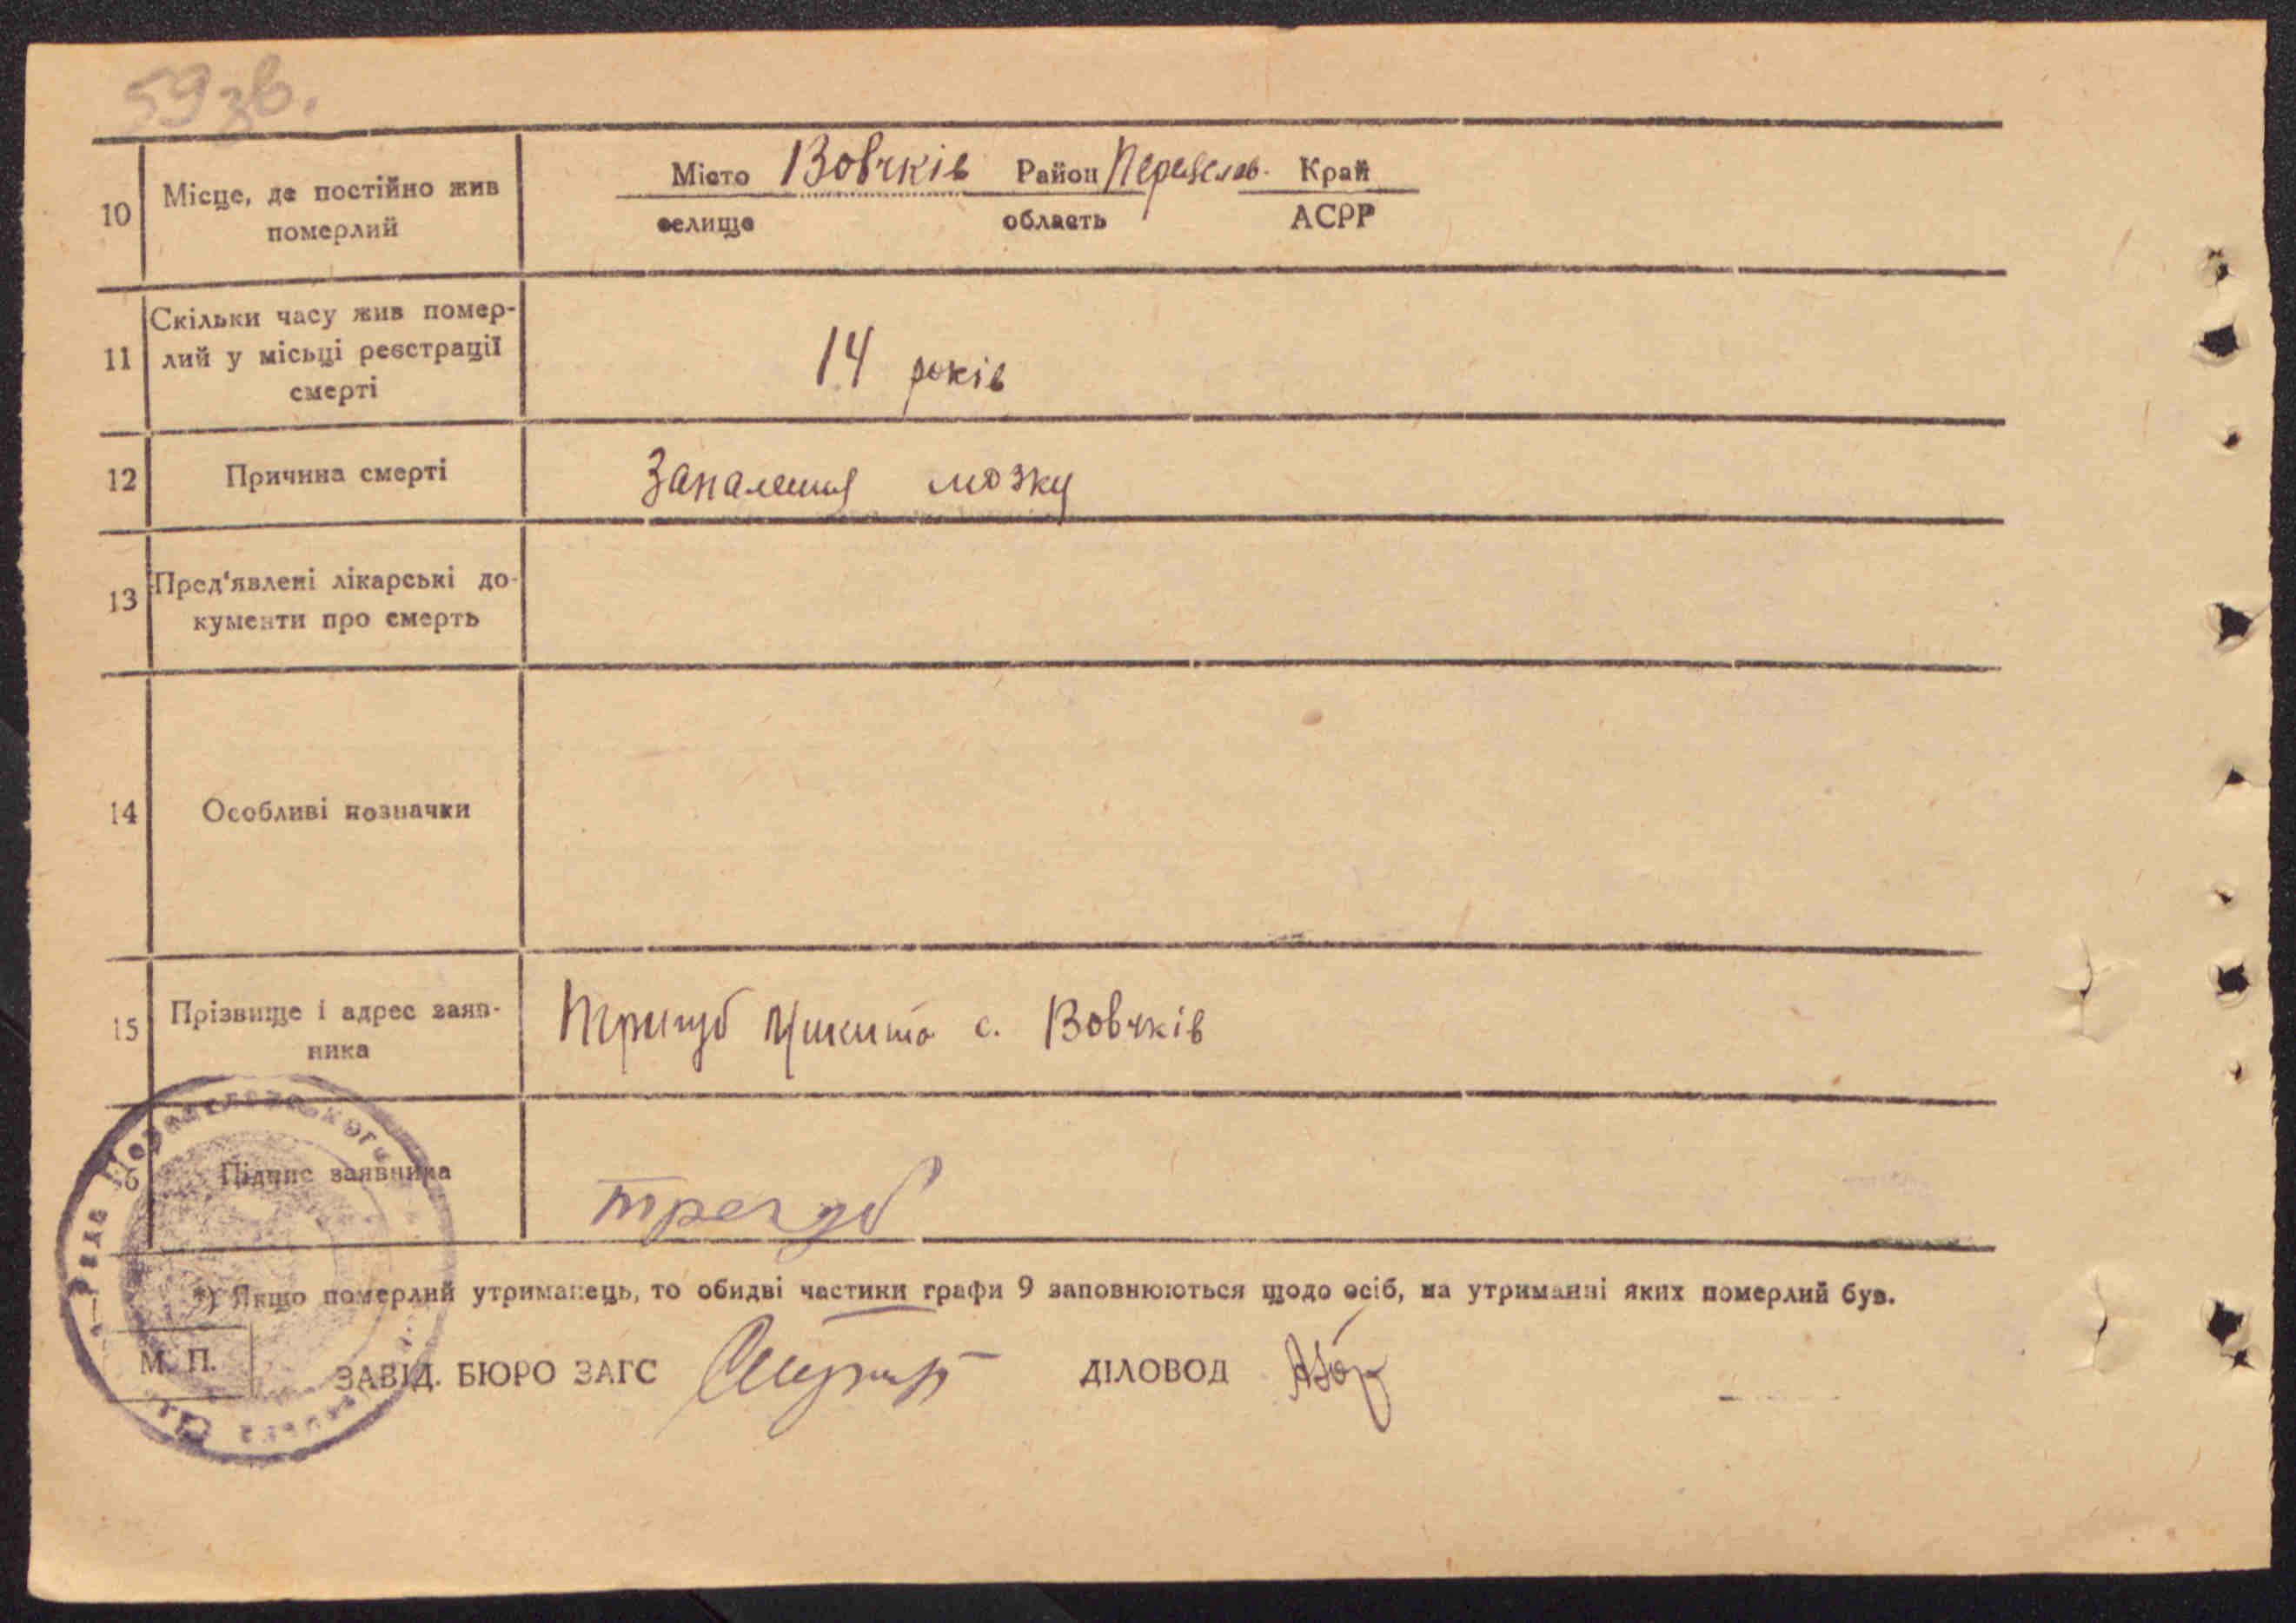 59 зв.
10 Місце, де постійно жив померлий
Місто Вовчків Район Переяслав. Край
селище область АСРР
11 Скільки часу жив помер-
лий у місьці реєстрації
смерті
14 років
12 Причина смерті Запалення мозку
13 Пред'явлені лікарські до-
кументи про смерть
14 Особливі позначки
15 Прізвище і адрес заяв-
ника
Тригуб Микита с. Вовчків
16 Підпис заявника трегуб
*) Якщо померлий утриманець, то обидві частини графи 9 заповнюються щодо осіб, на утриманні яких померлий був.
М. П.
ЗАВІД. БЮРО ЗАГС ДІЛОВОД
Рада Переяславського